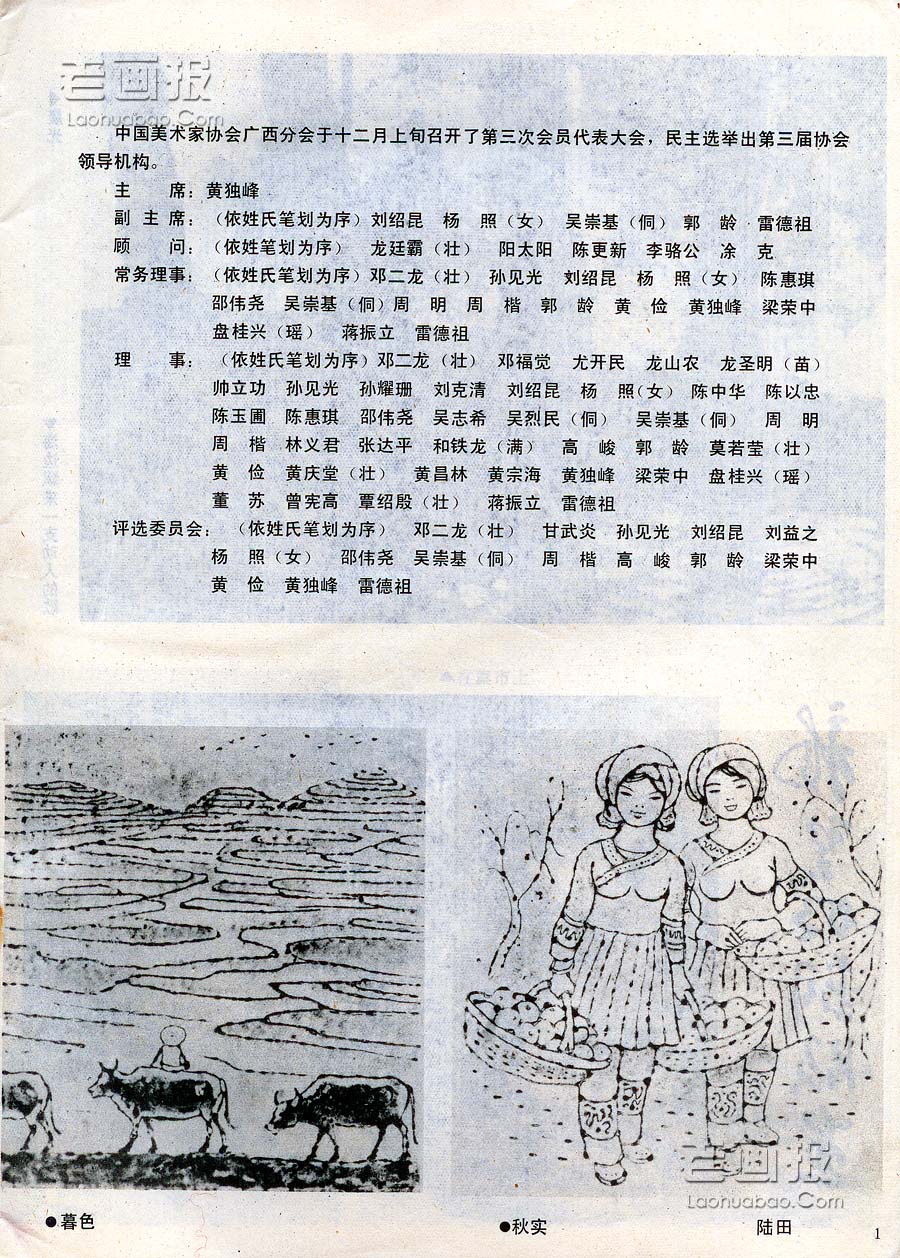 老画报
Laohuabao.Com
中国美术家协会广西分会于十二月上旬召开了第三次会员代表大会，民主选举出第三届协会
领导机构。
主　　席：黄独峰
副 主 席：（依姓氏笔划为序）刘绍昆　杨　照（女）　吴崇基（侗）　郭　龄　雷德祖
顾　　问：（依姓笔划为序）　龙廷霸（壮）　阳太阳　陈更新　李骆公　凃　克
常务理事：（依姓氏笔划为序）邓二龙（壮）　孙见光　刘绍昆　杨　照（女）　陈惠琪
邵伟尧　吴崇基（侗）周　明　周　楷　郭　龄　黄　俭　黄独峰　梁荣中
盘桂兴（瑶）　蒋振立　雷德祖
理　　事：　（依姓氏笔划为序）邓二龙（壮）　邓福觉　尤开民　龙山农　龙圣明（苗）
帅立功　孙见光　孙耀珊　刘克清　刘绍昆　杨　照（女）　陈中华　陈以忠
陈玉圃　陈惠琪　邵伟尧　吴志希　吴烈民（侗）　吴崇基（侗）　周　明
周　楷　林义君　张达平　和铁龙（满）　高　峻　郭　龄　莫若莹（壮）
黄　俭　黄庆堂（壮）　黄昌林　黄宗海　黄独峰　梁荣中　盘桂兴（瑶）
董　苏　曾宪高　覃绍殷（壮）　蒋振立　雷德祖
评选委员会：　（依姓氏笔划为序）　邓二龙（壮）　甘武炎　孙见光　刘绍昆　刘益之
杨　照（女）　邵伟尧　吴崇基（侗）　周　楷　高　峻　郭　龄　梁荣中
黄　俭　黄独峰　雷德祖
老画报
Laohuabao.Com
●暮色
●秋实　陆田
1